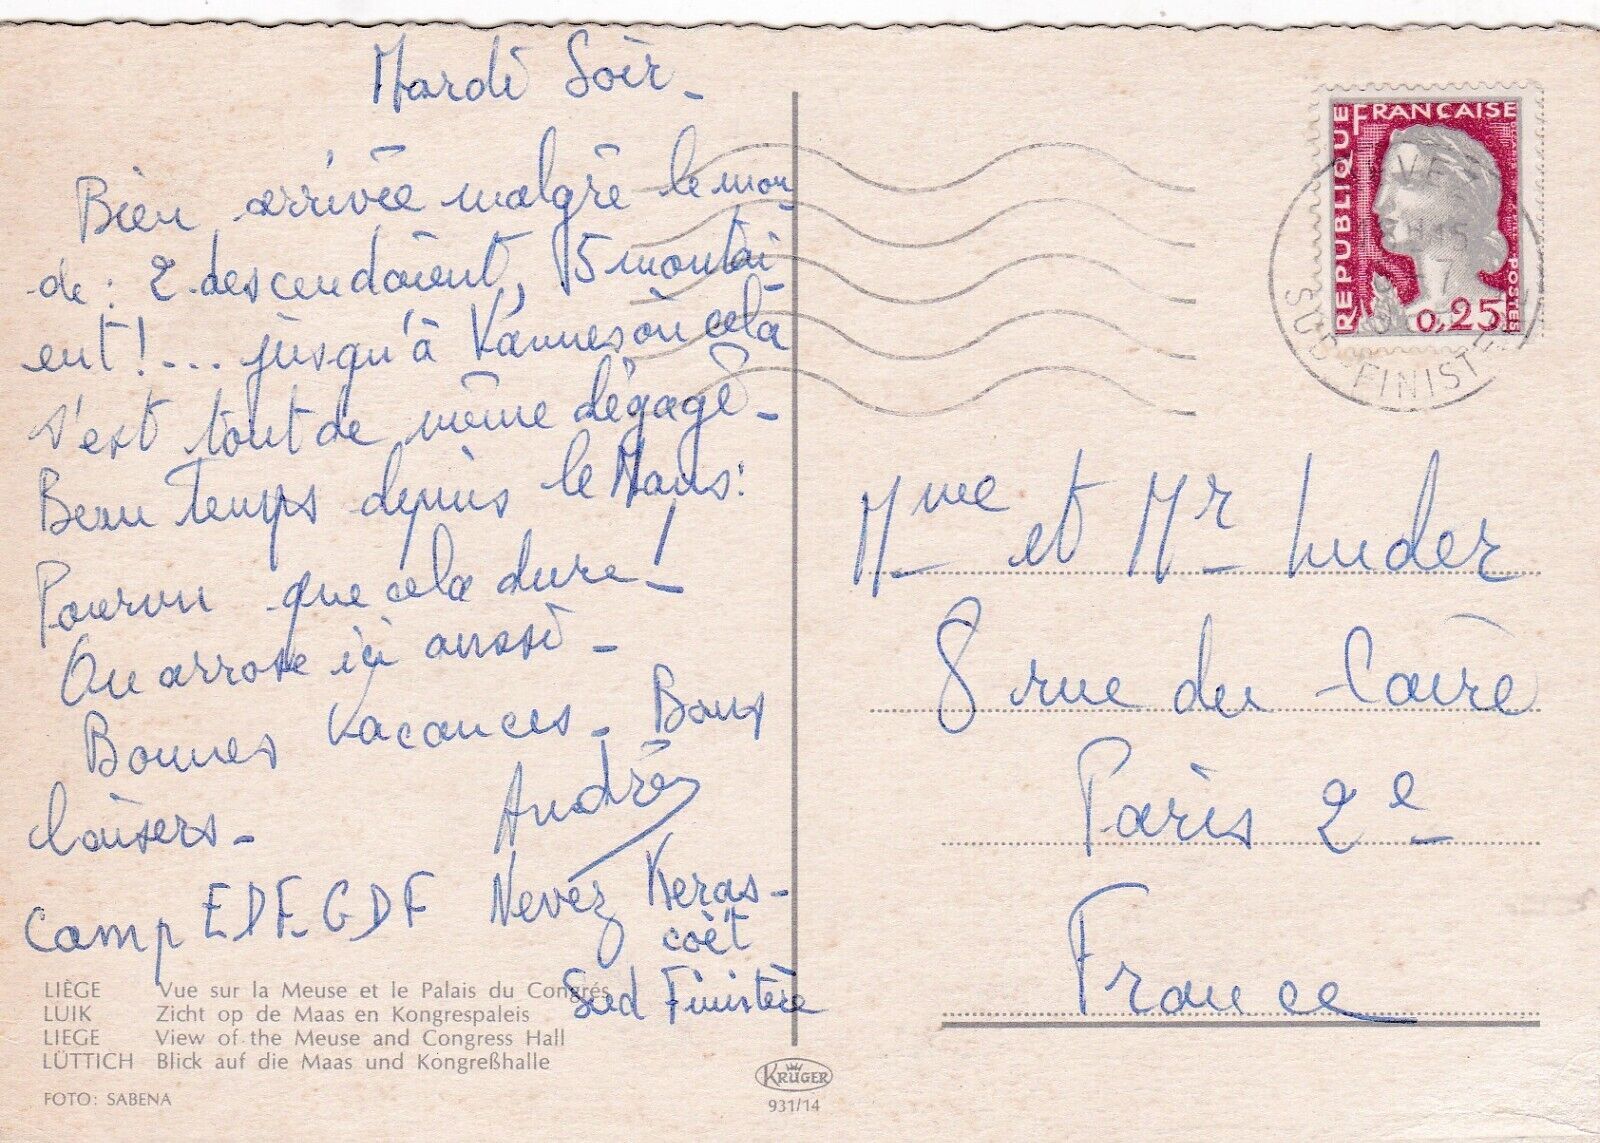 Mardi Soir -
Bien arrivée malgré le mon
de : 2 descendaient, 5 montai
ent ! ... jusqu'à Vannes où cela
s'est tout de même dégagé -
Beau Temps depuis le Mans :
Pourvu que cela dure !
On arrose ici aussi -
Bonnes Vacances - Bons
baisers - Andrée
Camp EDF-GDF Nevez Keras-
coët
Sud Finistère
LIÈGE Vue sur la Meuse et le Palais du Congrés
LUIK Zicht op de Maas en Kongrespaleis
LIEGE View of the Meuse and Congress Hall
LÜTTICH Blick auf die Maas und Kongreßhalle
FOTO: SABENA
KRÜGER
931/14
REPUBLIQUE FRANÇAISE
POSTES
0,25
SUD FINISTE
Mme et Mr Luder
8 rue du Caire
Paris 2e
France